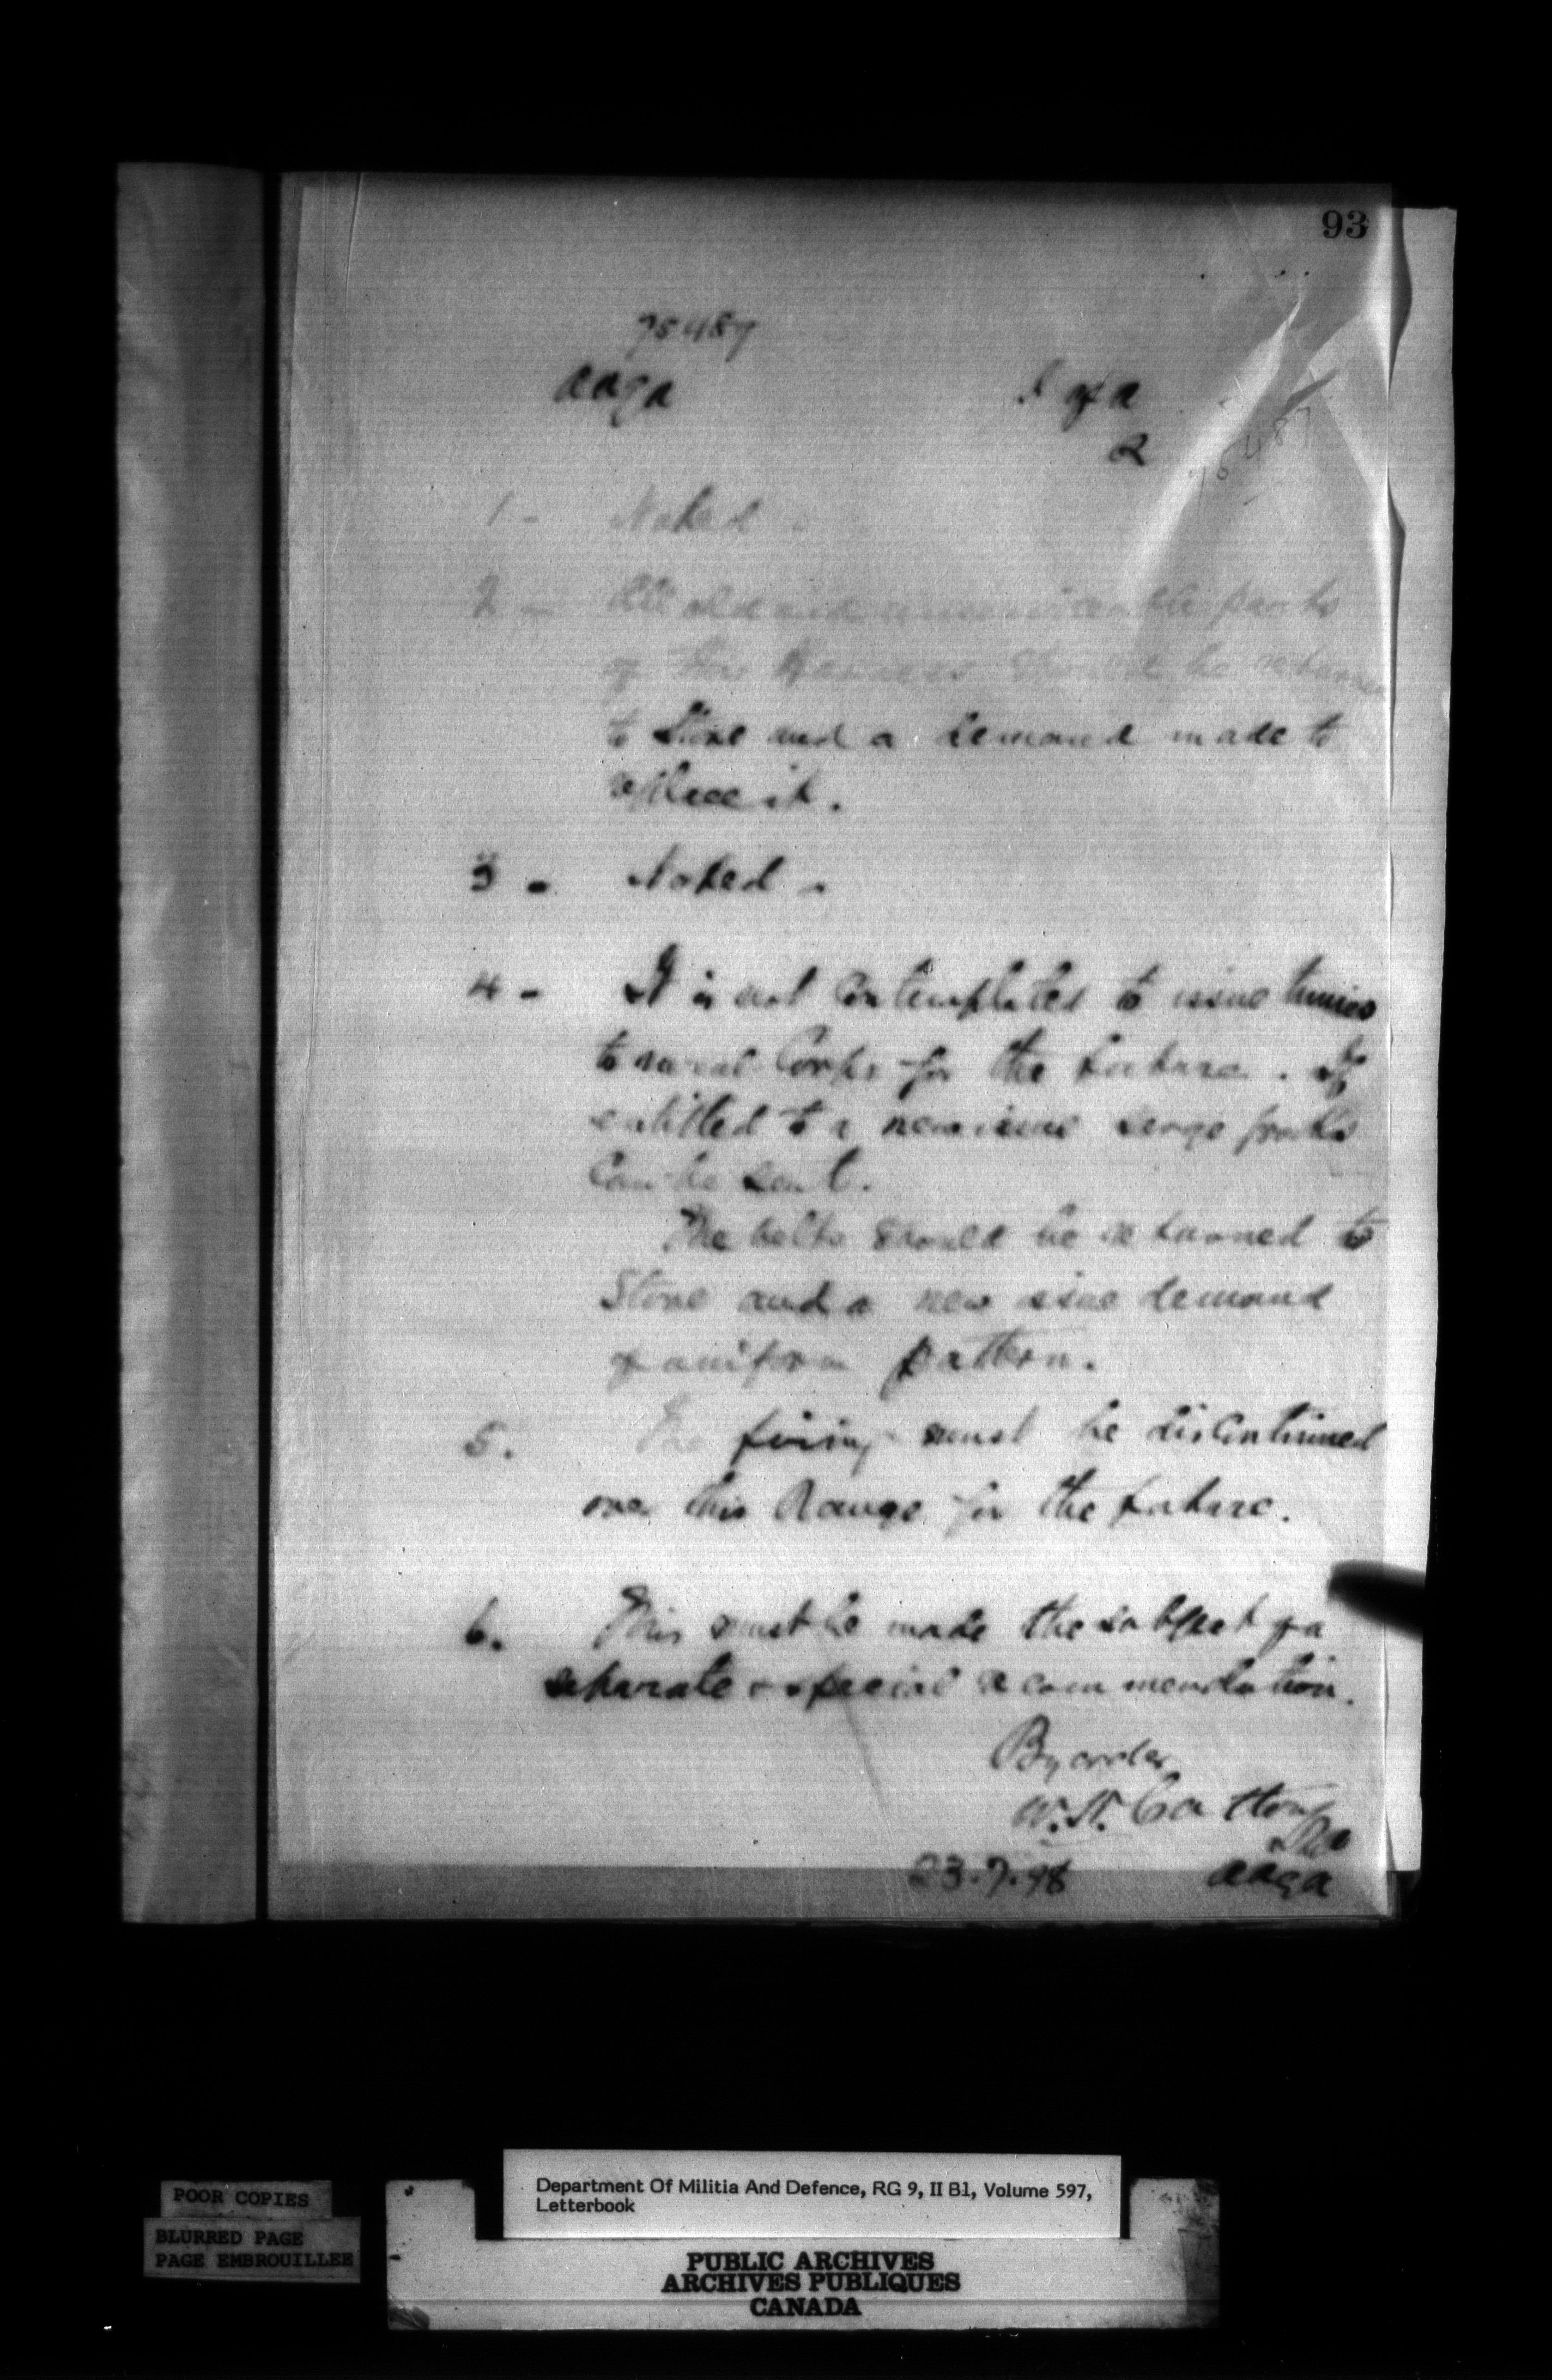 93
75487
aaga
I of A
2
75487
1 - Noted -
2 - All old and unserviceable parts
of this Harness should be returned
to Store and a demand made to
replace it.
3 - Noted -
4 - It is not contemplated to issue tunics
to rural Corps for the future. If
entitled to a new issue serge frocks
can be sent.
The belts should be returned to
Store and a new issue demand
of uniform pattern.
5. The firing must be discontinued
over this Range for the future.
6. This must be made the subject of a
separate & special recommendation.
By order
W. H.
aaga
23.7.98
POOR COPIES
BLURRED PAGE
PAGE EMBROUILLEE
Department Of Militia And Defence, RG 9, II B1, Volume 597,
Letterbook
PUBLIC ARCHIVES
ARCHIVES PUBLIQUES
CANADA